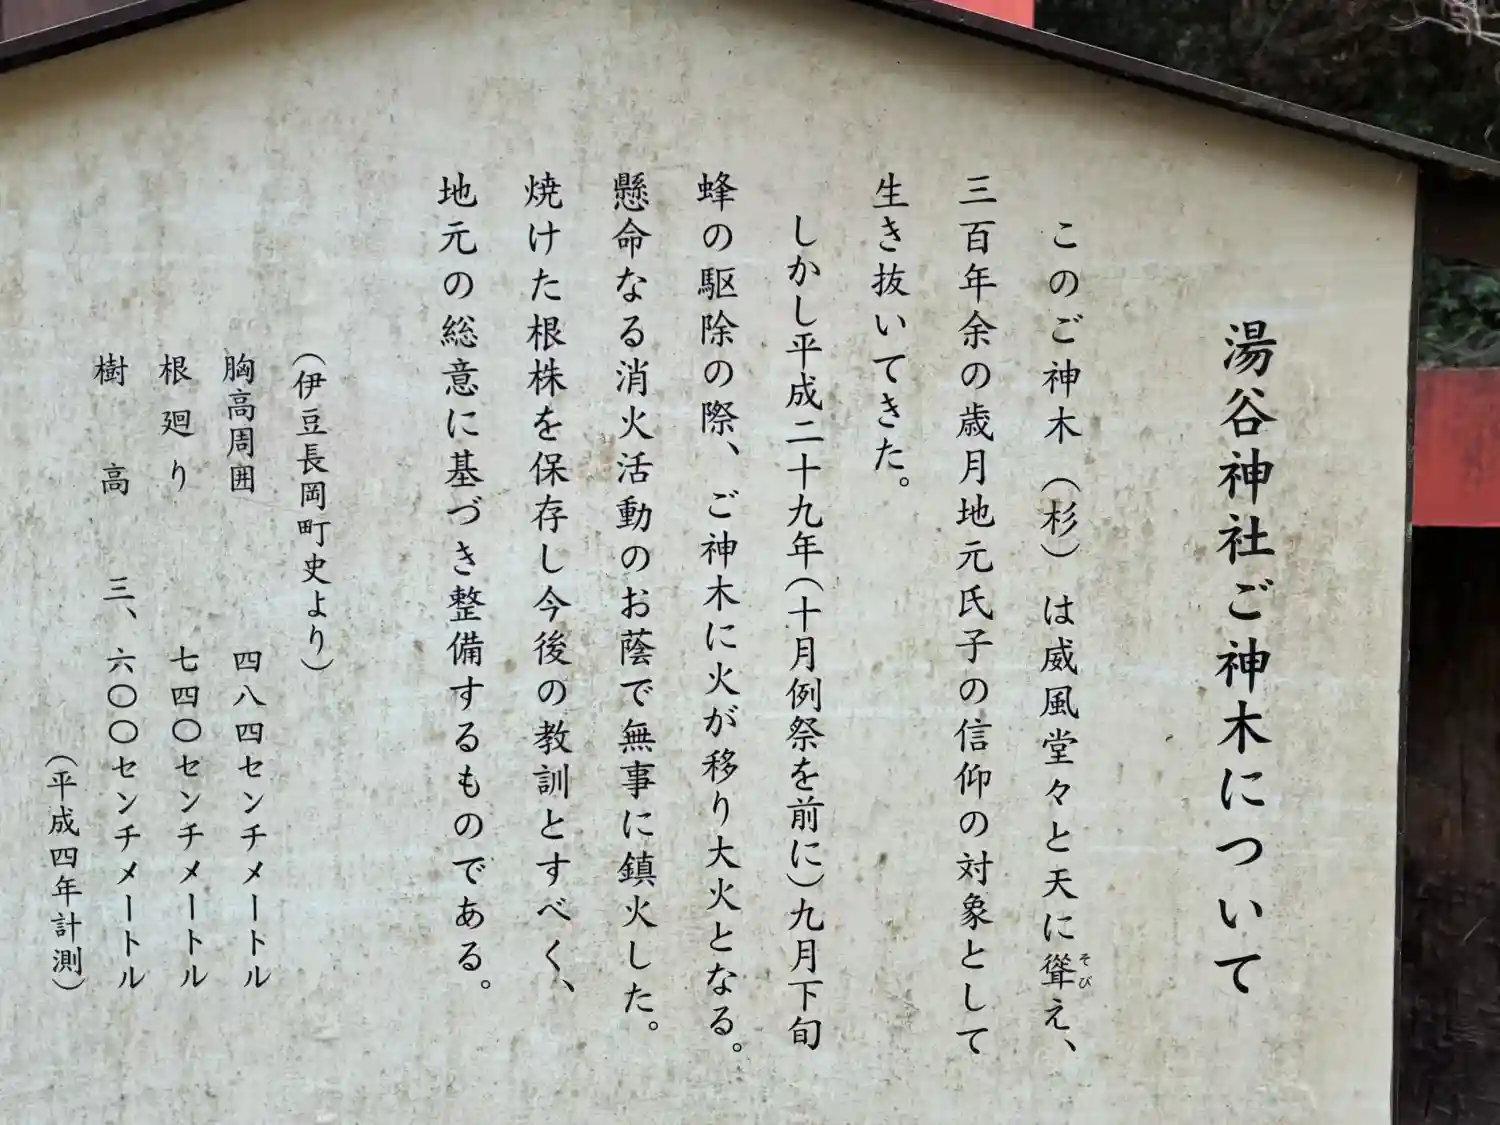 湯谷神社ご神木について
このご神木（杉）は威風堂々と天に聳え、
そび
三百年余の歳月地元氏子の信仰の対象として
生き抜いてきた。
しかし平成二十九年（十月例祭を前に）九月下旬
蜂の駆除の際、ご神木に火が移り大火となる。
懸命なる消火活動のお蔭で無事に鎮火した。
焼けた根株を保存し今後の教訓とすべく、
地元の総意に基づき整備するものである。
（伊豆長岡町史より）
胸高周囲 四八四センチメートル
根廻り 七四〇センチメートル
樹高 三、六〇〇センチメートル
（平成四年計測）